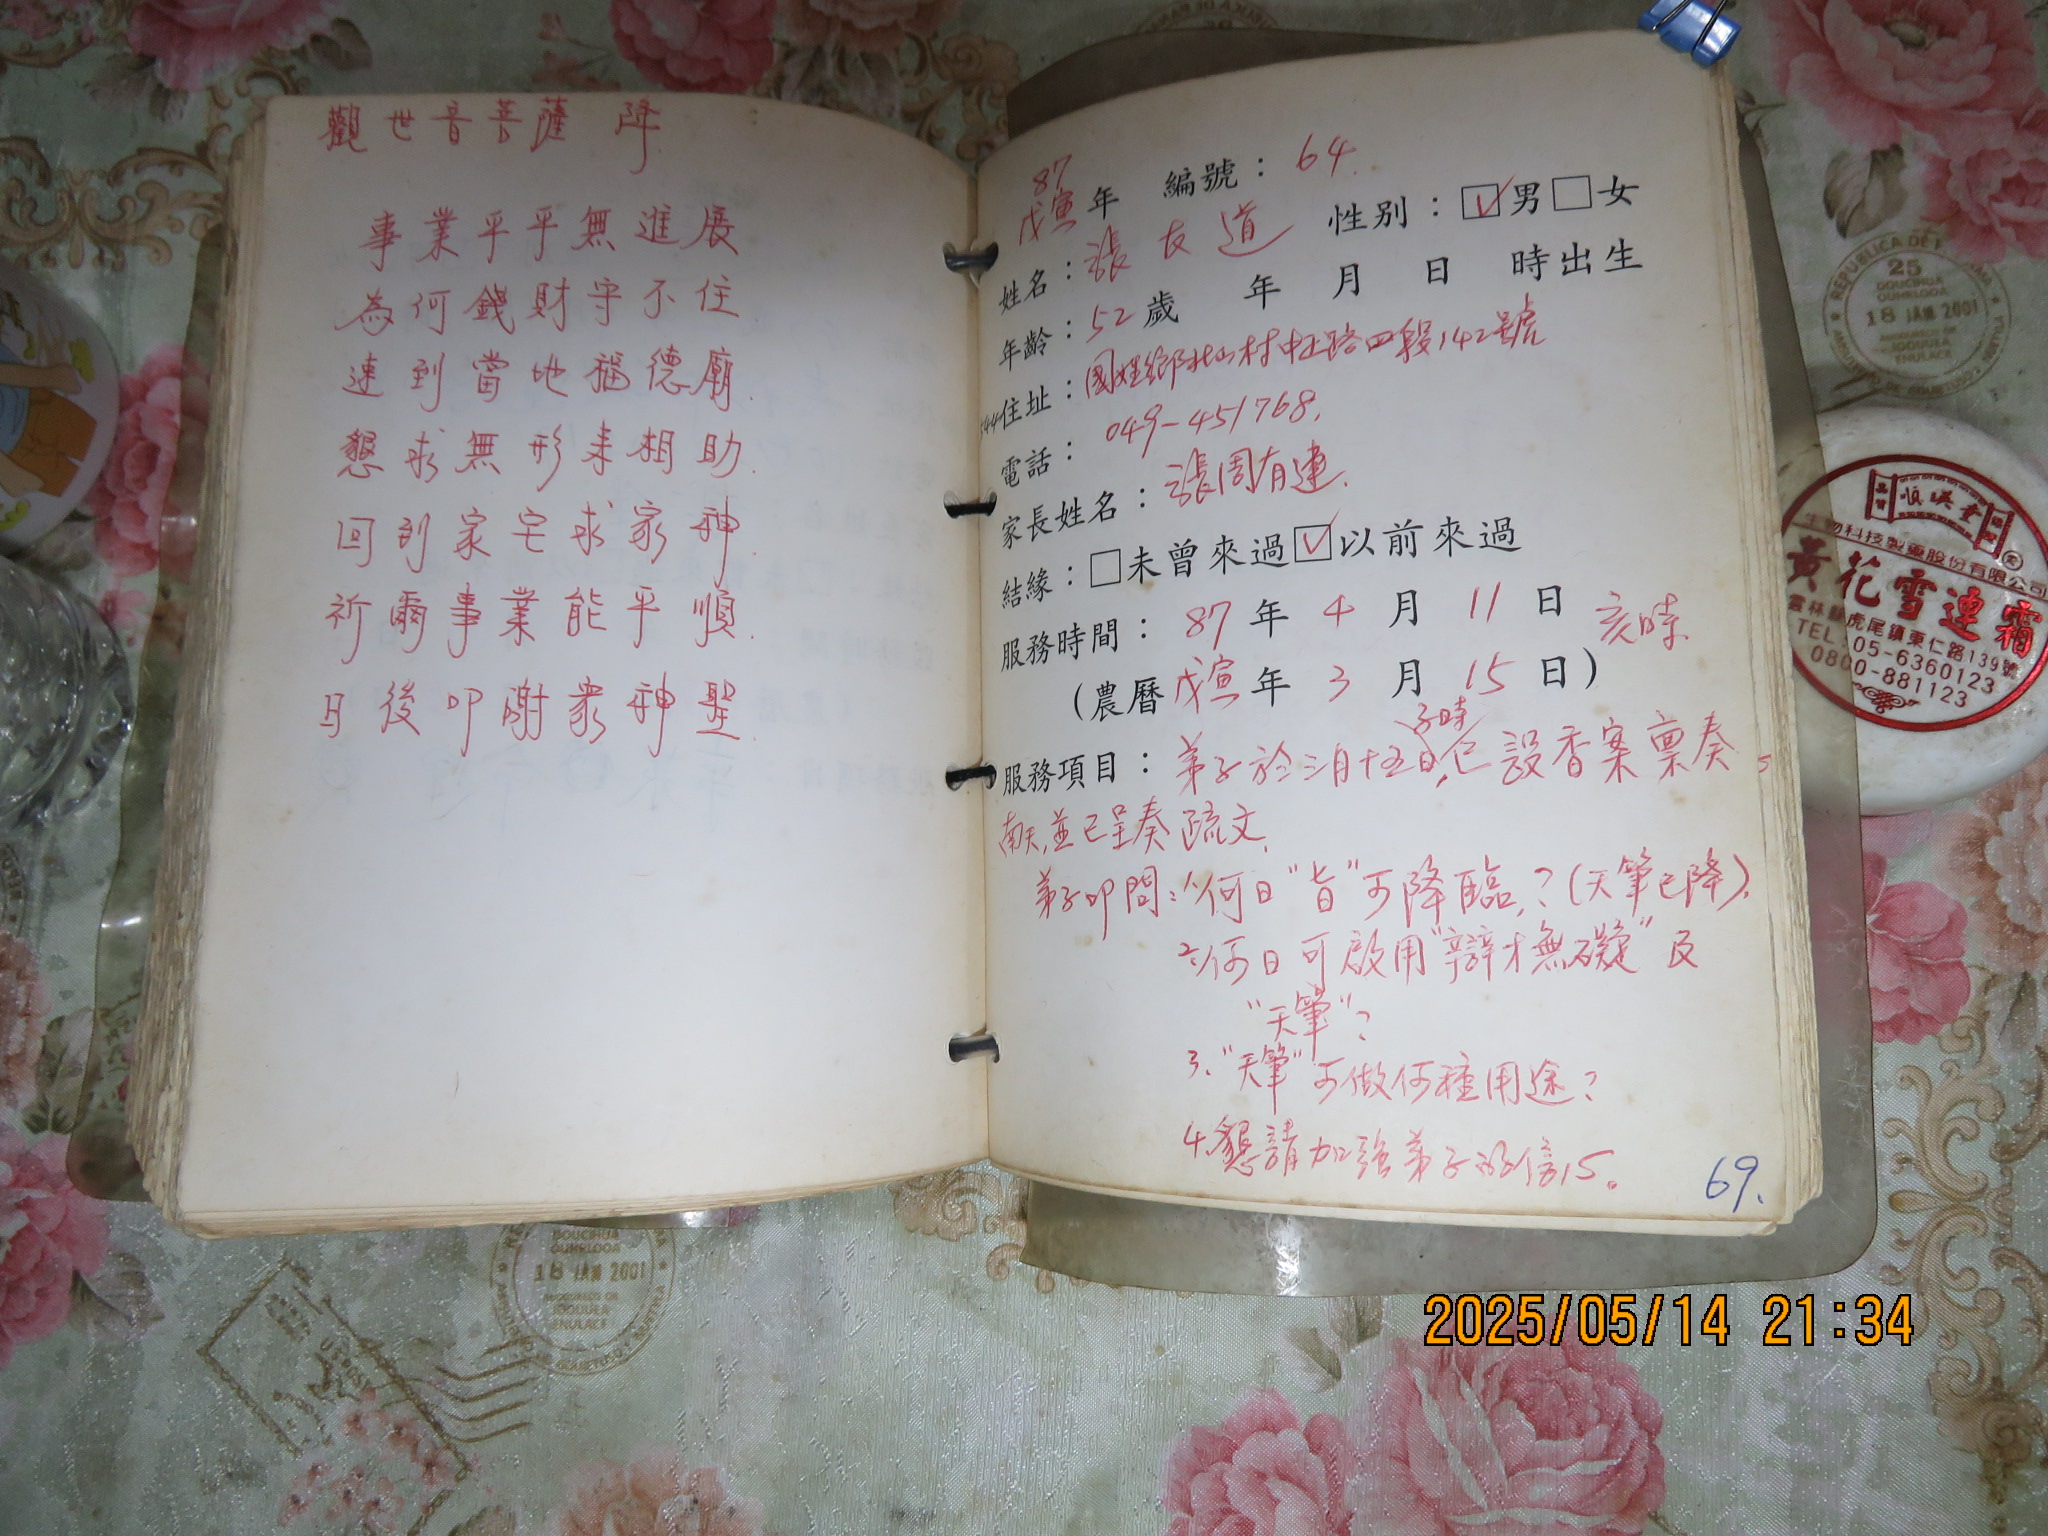 觀世音菩薩 降
事業平平無進展
為何錢財守不住
速到當地福德廟.
懇求無形来相助.
回到家宅求家神.
祈爾事業能平順.
日後叩謝衆神聖
87
戊寅年 編號：64.
姓名：張友道 性別：☑男□女
年齡：52歲 年 月 日 時出生
544住址：國姓鄉北山村中正路四段142號
電話：049-451768.
家長姓名：張周有連.
結緣：□未曾來過☑以前來過
服務時間：87年4月11日 亥時
(農曆戊寅年3月15日)
子時
服務項目：弟子於三月十五日,已設香案禀奏
南天,並已呈奏疏文.
弟子叩問：1.何日"旨"可降臨,？(天筆已降).
2.何日可啟用"辯才無礙"及
"天筆"？
3."天筆"可做何種用途？
4.懇請加強弟子的信心。
69.
REPUBLICA DE
25
DOUCIHUA
OUHRLOOA
18 JAN 2001
ENULACE
順天堂
生物科技製藥股份有限公司
黃花雪連霜
雲林縣虎尾鎮東仁路139號
TEL：05-6360123
0800-881123
DOUCIHUA
OUHRLOOA
18 JAN 2001
ENULACE
2025/05/14 21:34